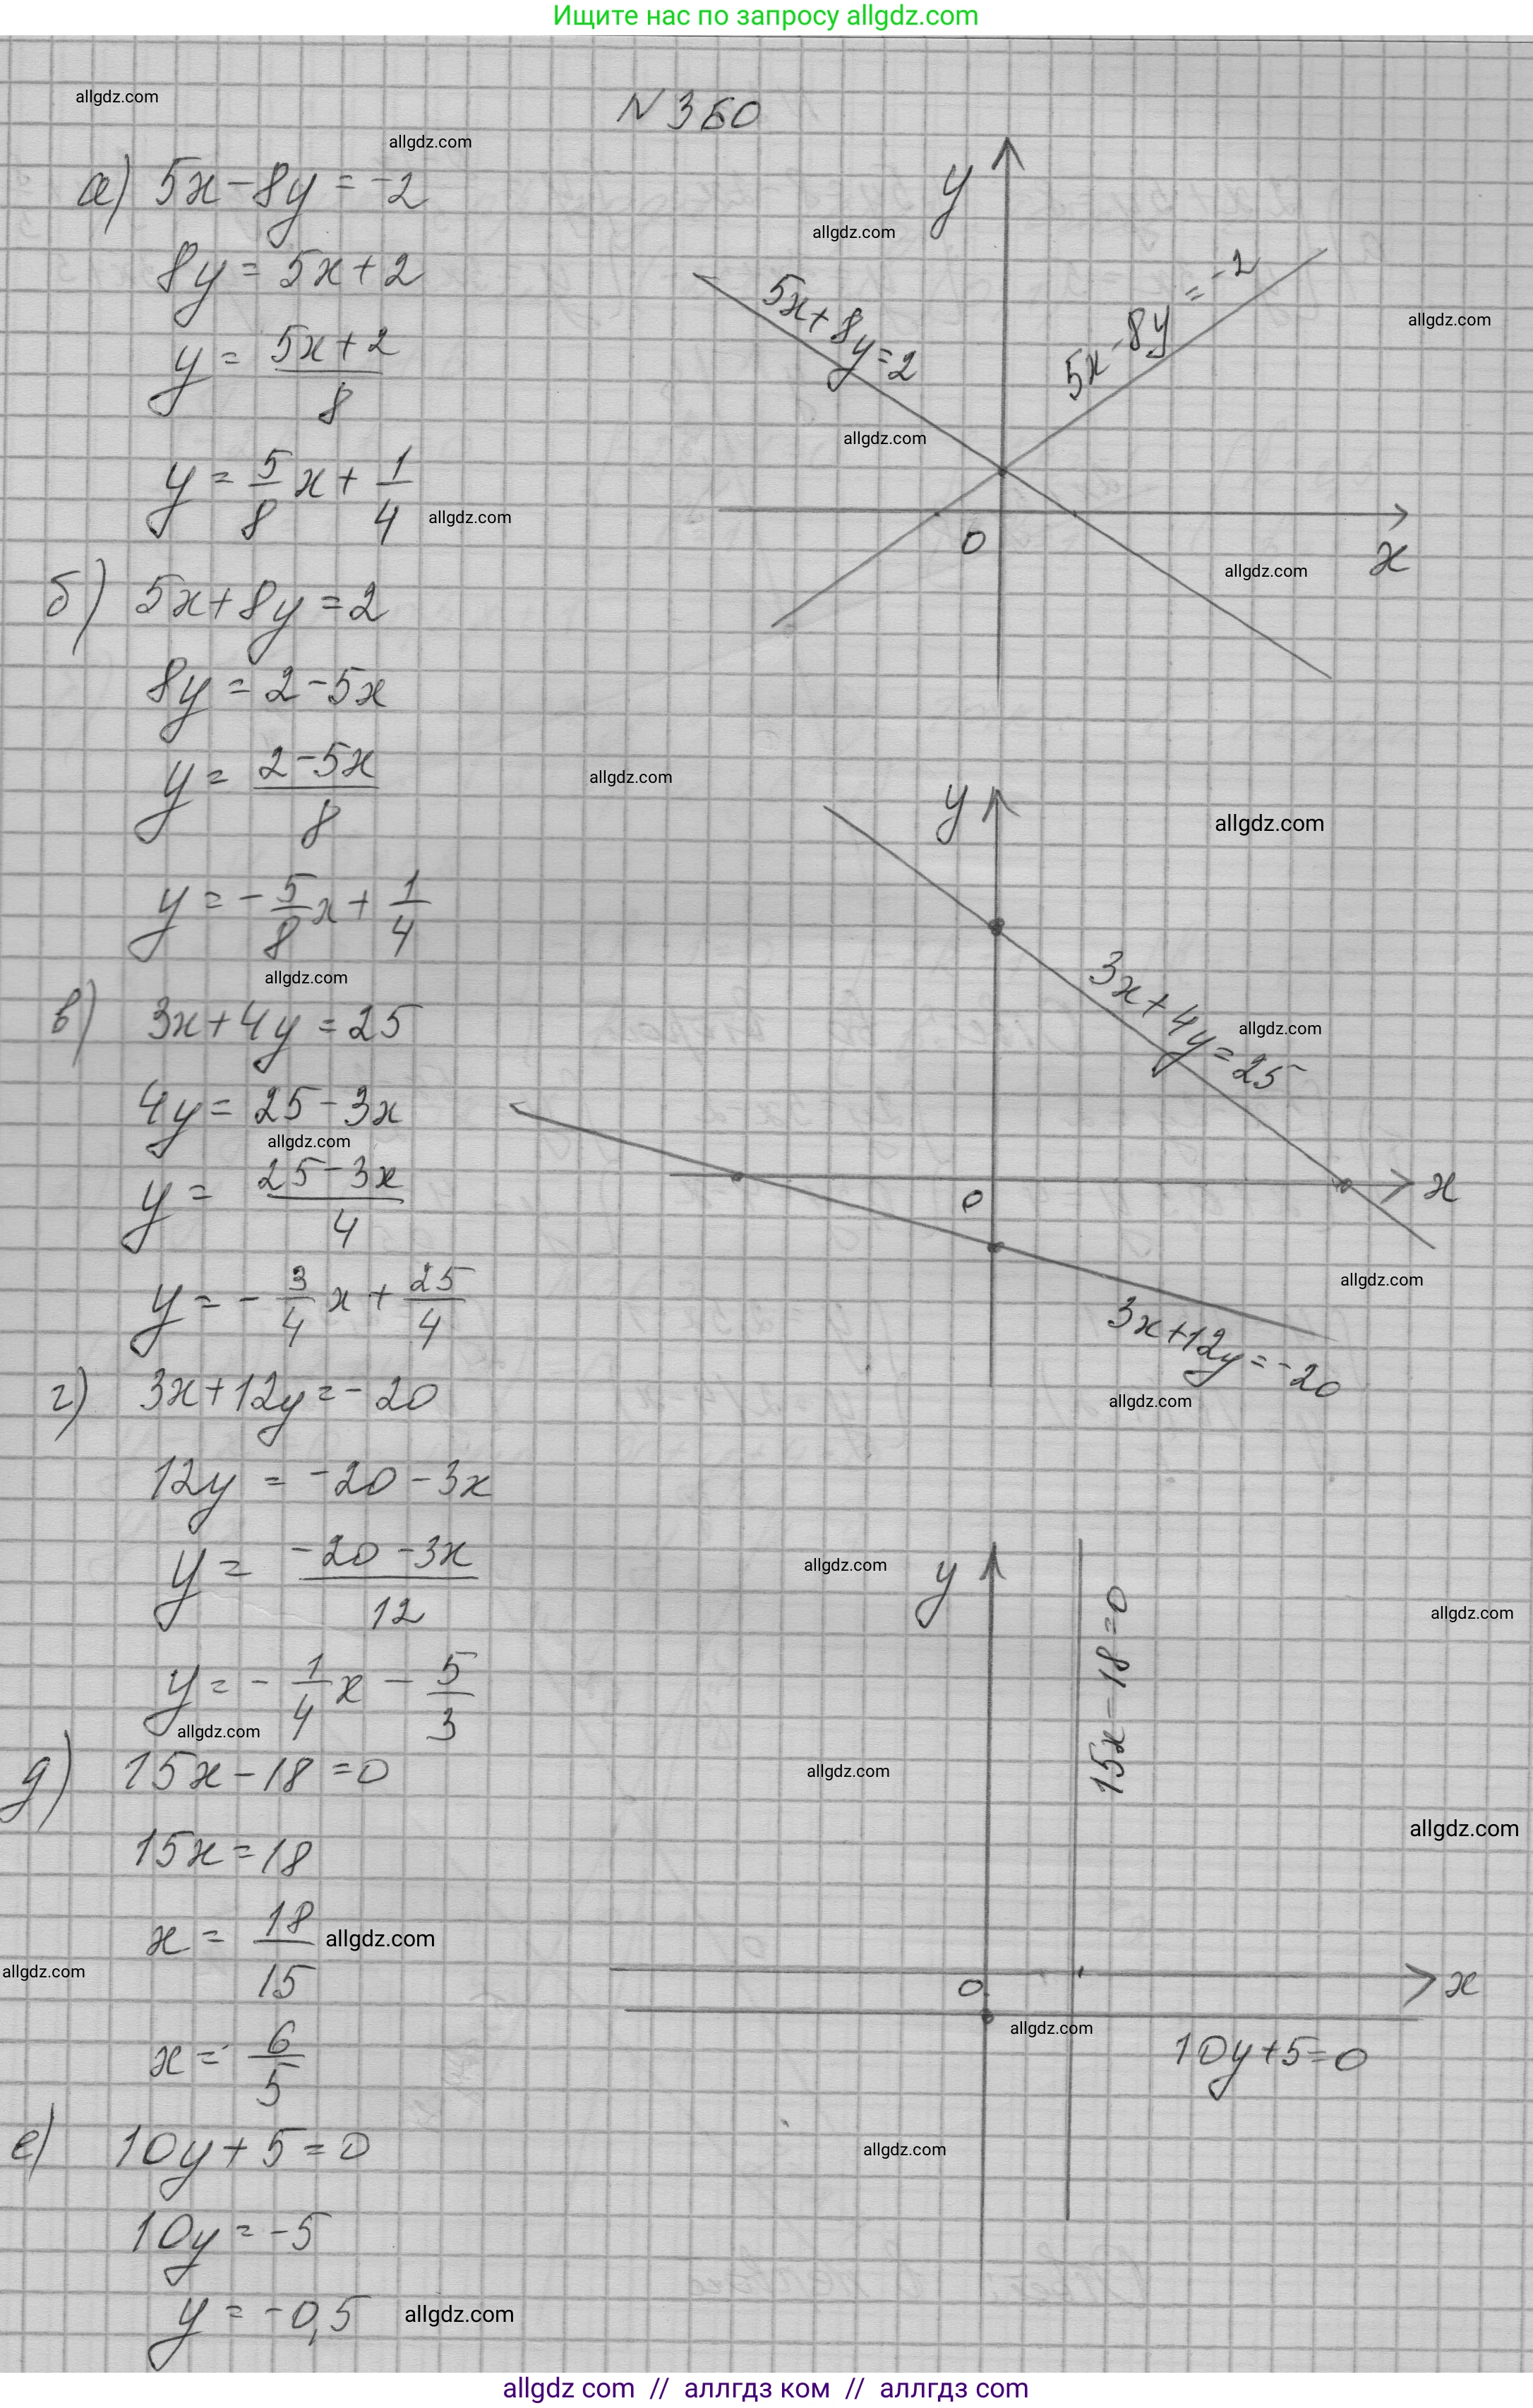 Ищите нас по запросу allgdz.com
allgdz.com
N 360
allgdz.com
а) 5x-8y=-2
y
allgdz.com
8y=5x+2
5x+8y=2
5x-8y=-2
allgdz.com
y=(5x+2)/8
allgdz.com
y=5/8x+1/4
allgdz.com
0
x
allgdz.com
б) 5x+8y=2
8y=2-5x
y=(2-5x)/8
allgdz.com
y
allgdz.com
y=-5/8x+1/4
allgdz.com
3x+4y=25
allgdz.com
в) 3x+4y=25
4y=25-3x
allgdz.com
y=(25-3x)/4
0
x
allgdz.com
y=-3/4x+25/4
3x+12y=-20
allgdz.com
г) 3x+12y=-20
12y=-20-3x
y=(-20-3x)/12
allgdz.com
y
15x-18=0
allgdz.com
y=-1/4x-5/3
allgdz.com
д) 15x-18=0
allgdz.com
allgdz.com
15x=18
x=18/15
allgdz.com
allgdz.com
0
x
allgdz.com
x=6/5
10y+5=0
е) 10y+5=0
allgdz.com
10y=-5
y=-0,5
allgdz.com
allgdz com // аллгдз ком // аллгдз com